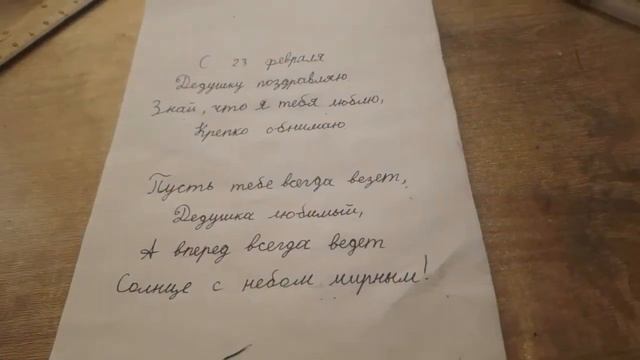 С 23 февраля
Дедушку поздравляю
Знай, что я тебя люблю,
Крепко обнимаю
Пусть тебе всегда везет,
Дедушка любимый,
А вперед всегда ведет
Солнце с небом мирным!